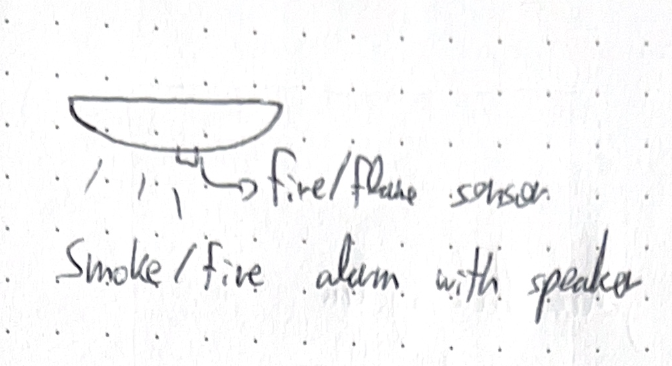 fire/flame sensor
Smoke/fire alarm with speaker